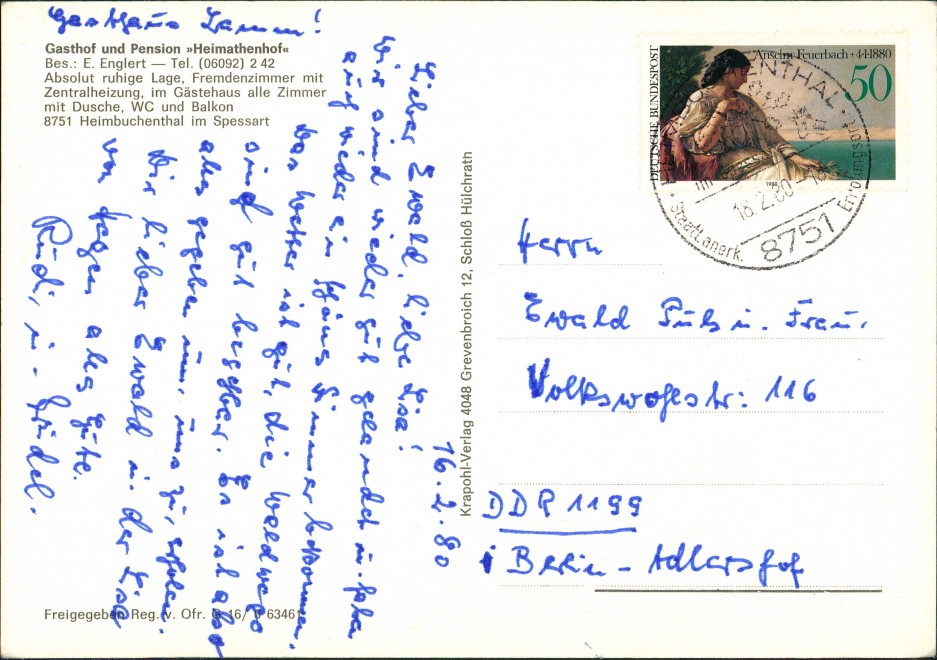 Gasthaus Lamm!
Gasthof und Pension »Heimathenhof«
Bes.: E. Englert — Tel. (06092) 2 42
Absolut ruhige Lage, Fremdenzimmer mit
Zentralheizung, im Gästehaus alle Zimmer
mit Dusche, WC und Balkon
8751 Heimbuchenthal im Spessart
16.2.80
Lieber Ewald, liebe Lisa!
Wir sind wieder gut gelandet u. haben
auch wieder ein schönes Zimmer bekommen.
Das Wetter ist gut, die Waldwege
sind gut begehbar. Es ist also
alles gegeben um, uns zu, erholen.
Dir lieber Ewald u. der Lisa
von Tagen alles Gute.
Rudi, u.
Freigegeben Reg. v. Ofr. G 16/ 63461
Krapohl-Verlag 4048 Grevenbroich 12, Schloß Hülchrath
DEUTSCHE BUNDESPOST
Anselm Feuerbach +4·1·1880
50
1980
18.2.80
Staatl. anerk. Erholungsort
8751
Herrn
Ewald Puls u. Frau.
Volkswohlstr: 116
DDR 1199
Berlin - Adlershof